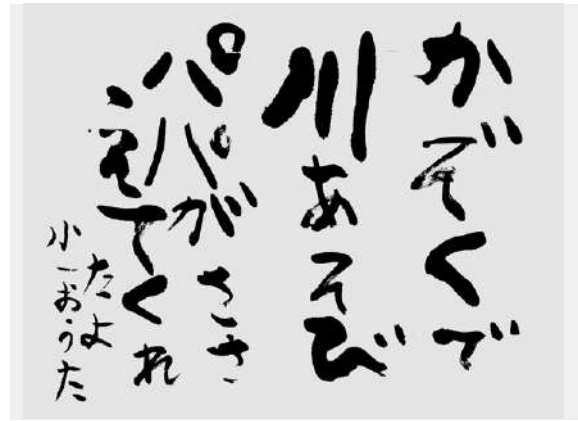 かぞくで
川あそび
パパがささ
えてくれ
たよ
小一おうた